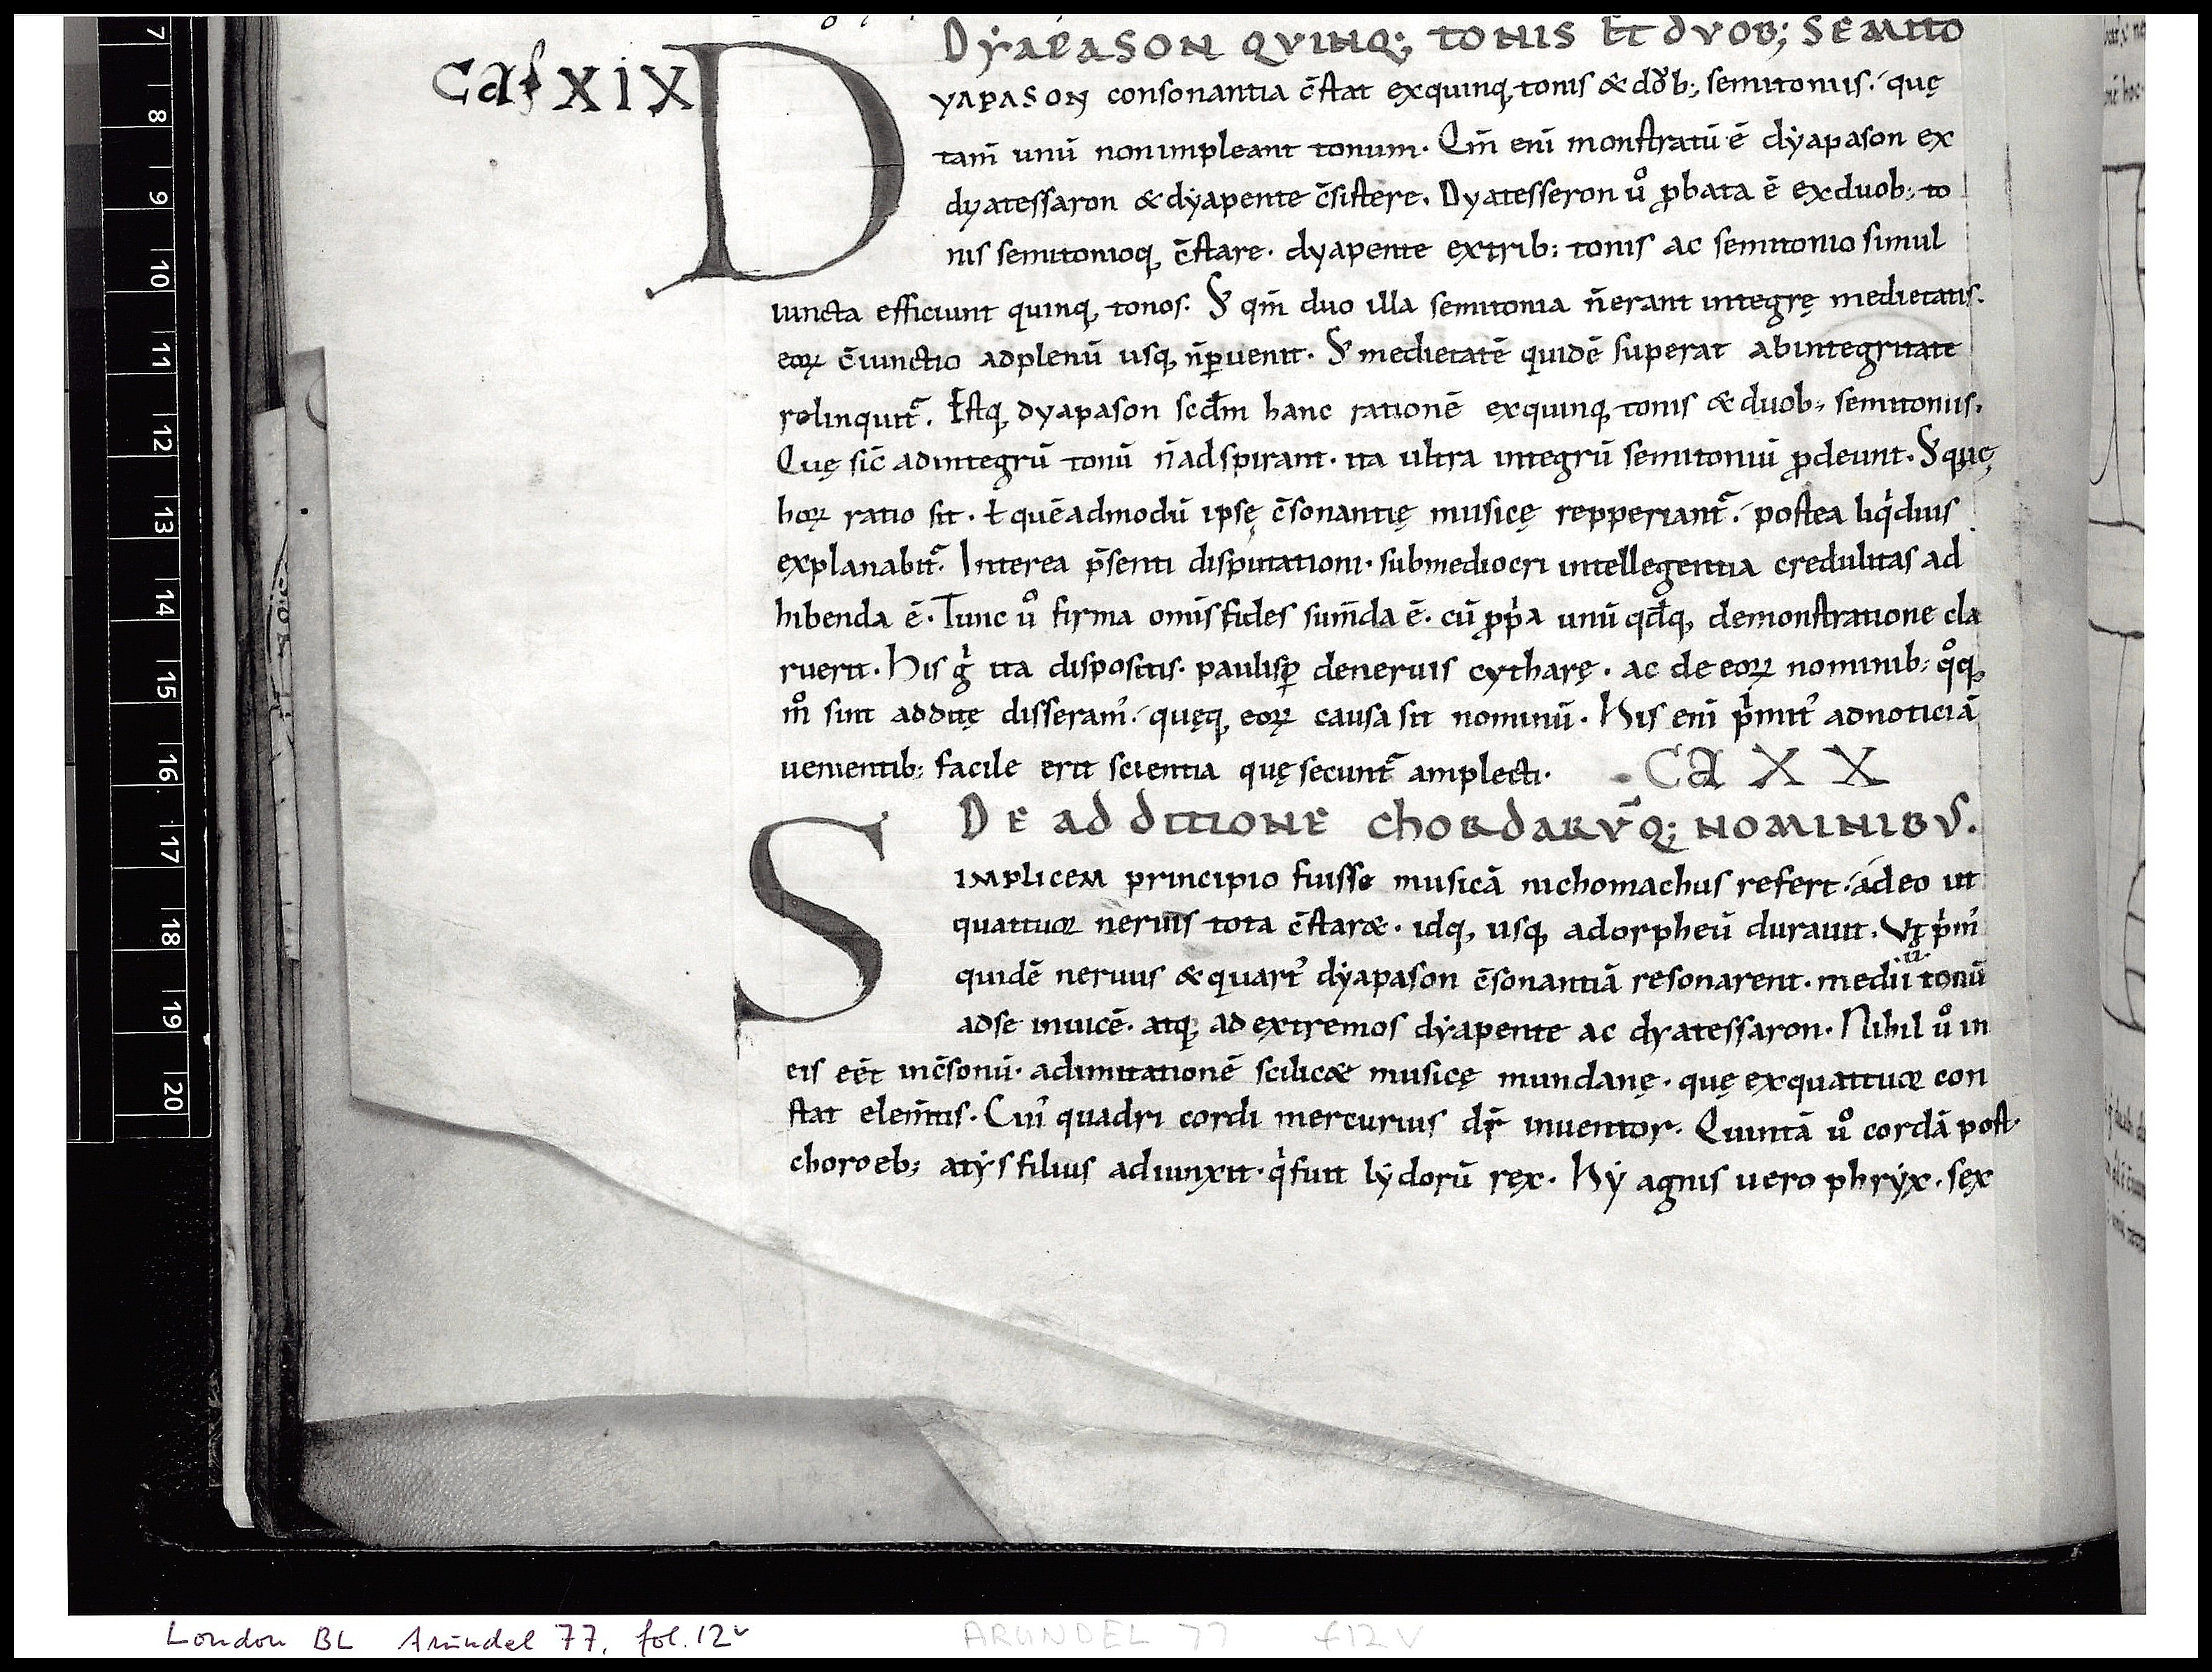 DYAPASON QVINQ; TONIS ET DVOB; SEMITO
Cap XIX
DYAPASON consonantia c̄stat exquinq, tonis & dob; semitoniis. quę
tam̄ unū nonimpleant tonum. Qm̄ eni monstratū ē dẏapason ex
dyatessaron & dẏapente c̄sistere. Dyatesseron uͦ ꝓbata ē exduob; to
nis semitonioq, c̄stare. dyapente extrib; tonis ac semitonio simul
iuncta efficiunt quinq, tonos. S; qm̄ duo illa semitonia n̄erant integrę medietatis.
eoꝝ c̄iunctio adplenū usq, n̄ꝑuenit. S; medietatē quidē superat abintegritate
relinquit᷑. Estq, dyapason scdm̄ hanc rationē exquinq, tonis & duob; semitoniis.
Quę sic̄ adintegrū tonū n̄adspirant. ita ultra integrū semitoniū ꝓdeunt. S; quę
hoꝝ ratio sit. ł quēadmodū ipsę c̄sonantię musicę repperiant᷑. postea liqͥdius
explanabit᷑. Interea p̄senti disputationi. submediocri intellegentia credulitas ad
hibenda ē. Tunc uͦ firma omīs fides sum̄da ē. cū ꝓpͥa unū qdq, demonstratione cla
ruerit. His gͥ ita dispositis. paulisꝑ deneruis cytharę. ac de eoꝝ nominib; qͦq,
mͦ sint additę disseramꝰ. quęq, eoꝝ causa sit nominū. His eni pͥmitꝰ adnoticiā
uenientib; facile erit scientia quę secunt᷑ amplecti. CA XX
DE ADDITIONE CHORDARV̄Q; NOMINIBVS.
SIMPLICEM principio fuisse musicā nichomachus refert. adeo ut
quattuor neruis tota c̄staret. idq, usq, adorpheū durauit. Vt pͥmꝰ
quidē neruus & quartꝰ dẏapason c̄sonantiā resonarent. medii u᷑ tonū
adse inuicē. atq, ad extremos dẏapente ac dyatessaron. Nihil uͦ in
eis eēt inc̄sonū. adimitationē scilicet musicę mundanę. quę exquattuor con
stat elem̄tis. Cuiꝰ quadri cordi mercurius dr̄ inuentor. Quintā uͦ cordā post
choroeb; atẏs filius adiunxit. qͥ fuit lẏdorū rex. Hẏ agnis uero phrẏx. sex
7
8
9
10
11
12
13
14
15
16
17
18
19
20
London BL Arundel 77, fol. 12v
ARUNDEL 77 f12V